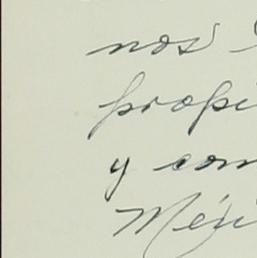 nos
propi
y com
Méxi